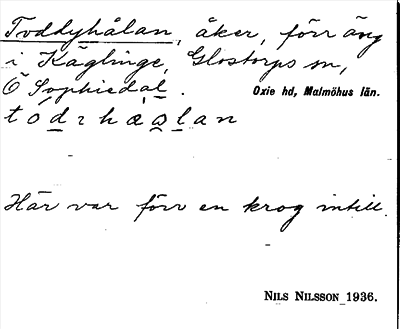 Toddyhålan, åker, förr äng
i Käglinge, Glostorps sn,
Ö Sophiedal. Oxie hd, Malmöhus län.
Här var förr en krog intill.
NILS NILSSON 1936.